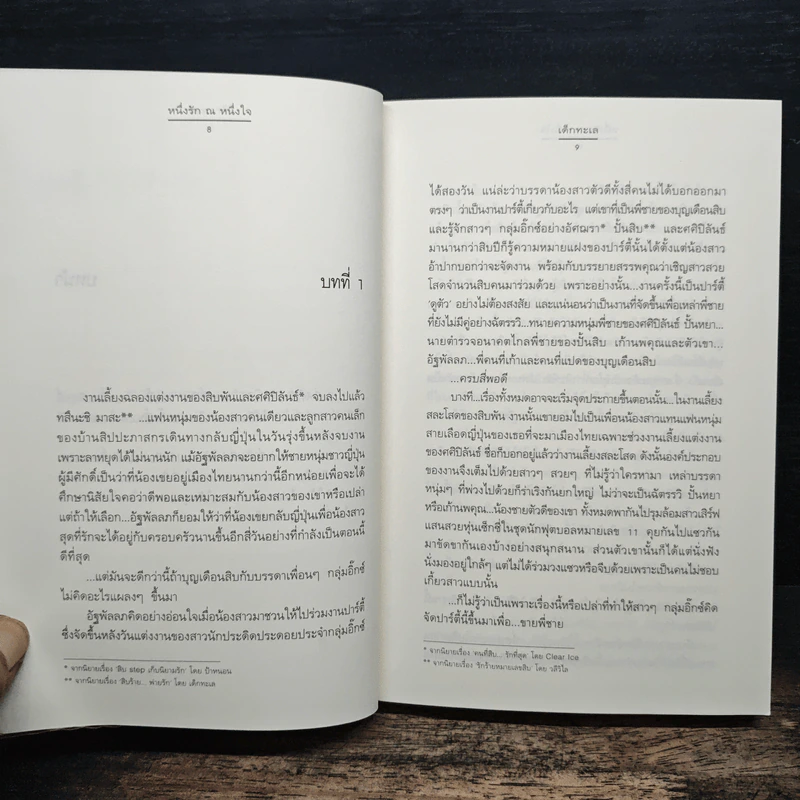 หนึ่งรัก ณ หนึ่งใจ
8
บทที่ 1
งานเลี้ยงฉลองแต่งงานของสิบพันและศศิปิลันธ์* จบลงไปแล้ว
ทสึนะชิ มาสะ** ...แฟนหนุ่มของน้องสาวคนเดียวและลูกสาวคนเล็ก
ของบ้านสิปปะภาสกรเดินทางกลับญี่ปุ่นในวันรุ่งขึ้นหลังจบงาน
เพราะลาหยุดได้ไม่นานนัก แม้อัฐพัลลภจะอยากให้ชายหนุ่มชาวญี่ปุ่น
ผู้มีศักดิ์เป็นว่าที่น้องเขยอยู่เมืองไทยนานกว่านี้อีกหน่อยเพื่อจะได้
ศึกษานิสัยใจคอว่าดีพอและเหมาะสมกับน้องสาวของเขาหรือเปล่า
แต่ถ้าให้เลือก...อัฐพัลลภก็ยอมให้ว่าที่น้องเขยกลับญี่ปุ่นเพื่อน้องสาว
สุดที่รักจะได้อยู่กับครอบครัวนานขึ้นอีกสี่วันอย่างที่กำลังเป็นตอนนี้
ดีที่สุด
...แต่มันจะดีกว่านี้ถ้าบุญเดือนสิบกับบรรดาเพื่อนๆ กลุ่มอิ๊กซ์
ไม่คิดอะไรแผลงๆ ขึ้นมา
อัฐพัลลภคิดอย่างอ่อนใจเมื่อน้องสาวมาชวนให้ไปร่วมงานปาร์ตี้
ซึ่งจัดขึ้นหลังวันแต่งงานของสาวนักประดิดประดอยประจำกลุ่มอิ๊กซ์
* จากนิยายเรื่อง 'สิบ step เก็บนิยามรัก' โดย ป้าหนอน
** จากนิยายเรื่อง 'สิบร้าย... พ่ายรัก' โดย เด็กทะเล
เด็กทะเล
9
ได้สองวัน แน่ล่ะว่าบรรดาน้องสาวตัวดีทั้งสี่คนไม่ได้บอกออกมา
ตรงๆ ว่าเป็นงานปาร์ตี้เกี่ยวกับอะไร แต่เขาที่เป็นพี่ชายของบุญเดือนสิบ
และรู้จักสาวๆ กลุ่มอิ๊กซ์อย่างอัศฌรา* ปั้นสิบ** และศศิปิลันธ์
มานานกว่าสิบปีก็รู้ความหมายแฝงของปาร์ตี้นั้นได้ตั้งแต่น้องสาว
อ้าปากบอกว่าจะจัดงาน พร้อมกับบรรยายสรรพคุณว่าเชิญสาวสวย
โสดจำนวนสิบคนมาร่วมด้วย เพราะอย่างนั้น...งานครั้งนี้เป็นปาร์ตี้
'ดูตัว' อย่างไม่ต้องสงสัย และแน่นอนว่าเป็นงานที่จัดขึ้นเพื่อเหล่าพี่ชาย
ที่ยังไม่มีคู่อย่างฉัตรรวิ...ทนายความหนุ่มพี่ชายของศศิปิลันธ์ ปั้นหยา...
นายตำรวจอนาคตไกลพี่ชายของปั้นสิบ เก้านพคุณและตัวเขา...
อัฐพัลลภ...พี่คนที่เก้าและคนที่แปดของบุญเดือนสิบ
...ครบสี่พอดี
บางที...เรื่องทั้งหมดอาจจะเริ่มจุดประกายขึ้นตอนนั้น...ในงานเลี้ยง
สละโสดของสิบพัน งานนั้นเขายอมไปเป็นเพื่อนน้องสาวแทนแฟนหนุ่ม
สายเลือดญี่ปุ่นของเธอที่จะมาเมืองไทยเฉพาะช่วงงานเลี้ยงแต่งงาน
ของศศิปิลันธ์ ชื่อก็บอกอยู่แล้วว่างานเลี้ยงสละโสด ดังนั้นองค์ประกอบ
ของงานจึงเต็มไปด้วยสาวๆ สวยๆ ที่ไม่รู้ว่าใครหามา เหล่าบรรดา
หนุ่มๆ ที่พ่วงไปด้วยก็ร่าเริงกันยกใหญ่ ไม่ว่าจะเป็นฉัตรรวิ ปั้นหยา
หรือเก้านพคุณ...น้องชายตัวดีของเขา ทั้งหมดพากันไปรุมล้อมสาวเสิร์ฟ
แสนสวยหุ่นเซ็กซี่ในชุดนักฟุตบอลหมายเลข 11 คุยกันไปแซวกัน
มาขัดขากันเองบ้างอย่างสนุกสนาน ส่วนตัวเขานั้นก็ได้แต่นั่งฟัง
นั่งมองอยู่ใกล้ๆ แต่ไม่ได้ร่วมวงแซวหรือจีบด้วยเพราะเป็นคนไม่ชอบ
เกี้ยวสาวแบบนั้น
...ก็ไม่รู้ว่าเป็นเพราะเรื่องนี้หรือเปล่าที่ทำให้สาวๆ กลุ่มอิ๊กซ์คิด
จัดปาร์ตี้นี้ขึ้นมาเพื่อ...ขายพี่ชาย
* จากนิยายเรื่อง 'คนที่สิบ... รักที่สุด' โดย Clear Ice
** จากนิยายเรื่อง 'รักร้ายหมายเลขสิบ' โดย วลีวิไล